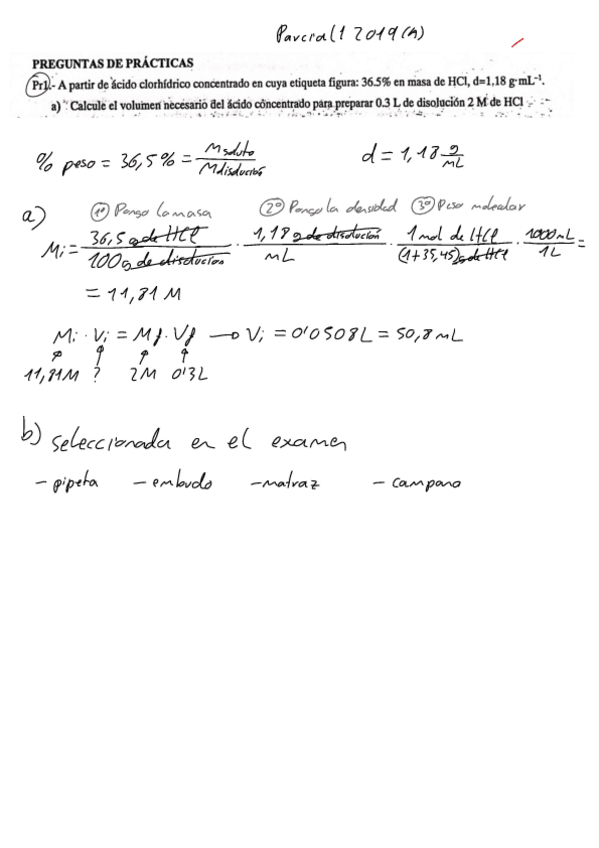 Parcial 1 2019 (A)
PREGUNTAS DE PRÁCTICAS
Pr1.- A partir de ácido clorhídrico concentrado en cuya etiqueta figura: 36.5% en masa de HCl, d=1,18 g·mL⁻¹.
a) Calcule el volumen necesario del ácido concentrado para preparar 0.3 L de disolución 2 M de HCl
% peso = 36,5% = Msoluto / Mdisolución    d = 1,18 g/mL
a) 1º Pongo la masa 2º Pongo la densidad 3º Peso molecular
Mi = 36,5 g de HCl / 100 g de disolución · 1,18 g de disolución / mL · 1 mol de HCl / (1+35,45) g de HCl · 1000 mL / 1L =
= 11,81 M
Mi · Vi = Mf · Vf → Vi = 0'0508L = 50,8 mL
11,81M ? 2M 0'3L
b) seleccionada en el examen
- pipeta - embudo - matraz - campana